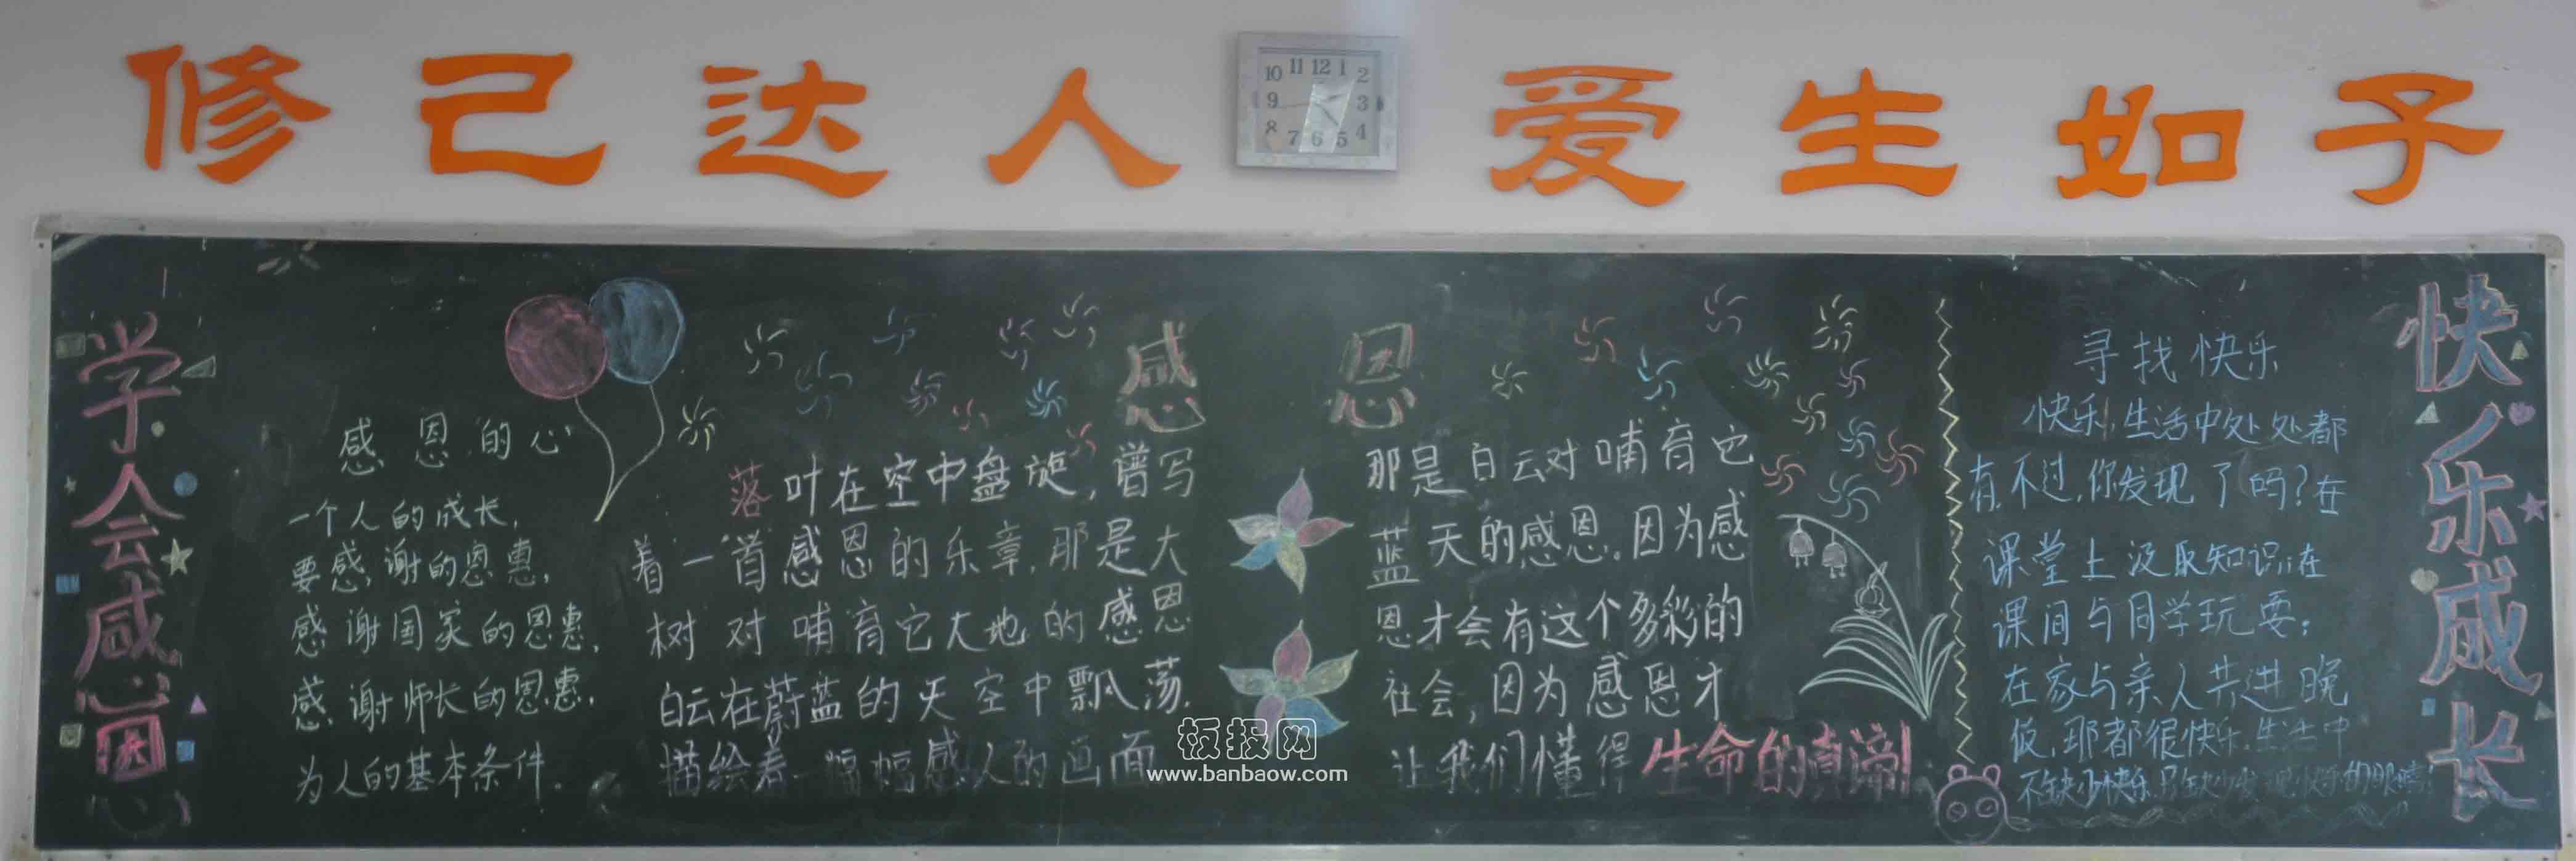 修己达人 爱生如子
10 11 12 1 2
9 3
8 7 6 5 4
学会感恩
感恩的心
一个人的成长,
要感谢的恩惠,
感谢国家的恩惠,
感谢师长的恩惠,
为人的基本条件。
感恩
落叶在空中盘旋,谱写
着一首感恩的乐章,那是大
树对哺育它大地的感恩
白云在蔚蓝的天空中飘荡,
描绘着一幅幅感人的画面
那是白云对哺育它
蓝天的感恩。因为感
恩才会有这个多彩的
社会,因为感恩才
让我们懂得生命的真谛!
寻找快乐
快乐,生活中处处都
有,不过,你发现了吗?在
课堂上汲取知识;在
课间与同学玩耍;
在家与亲人共进晚
饭,那都很快乐,生活中
不缺少快乐,只缺少发现快乐的眼睛!
快乐成长
板报网
www.banbaow.com